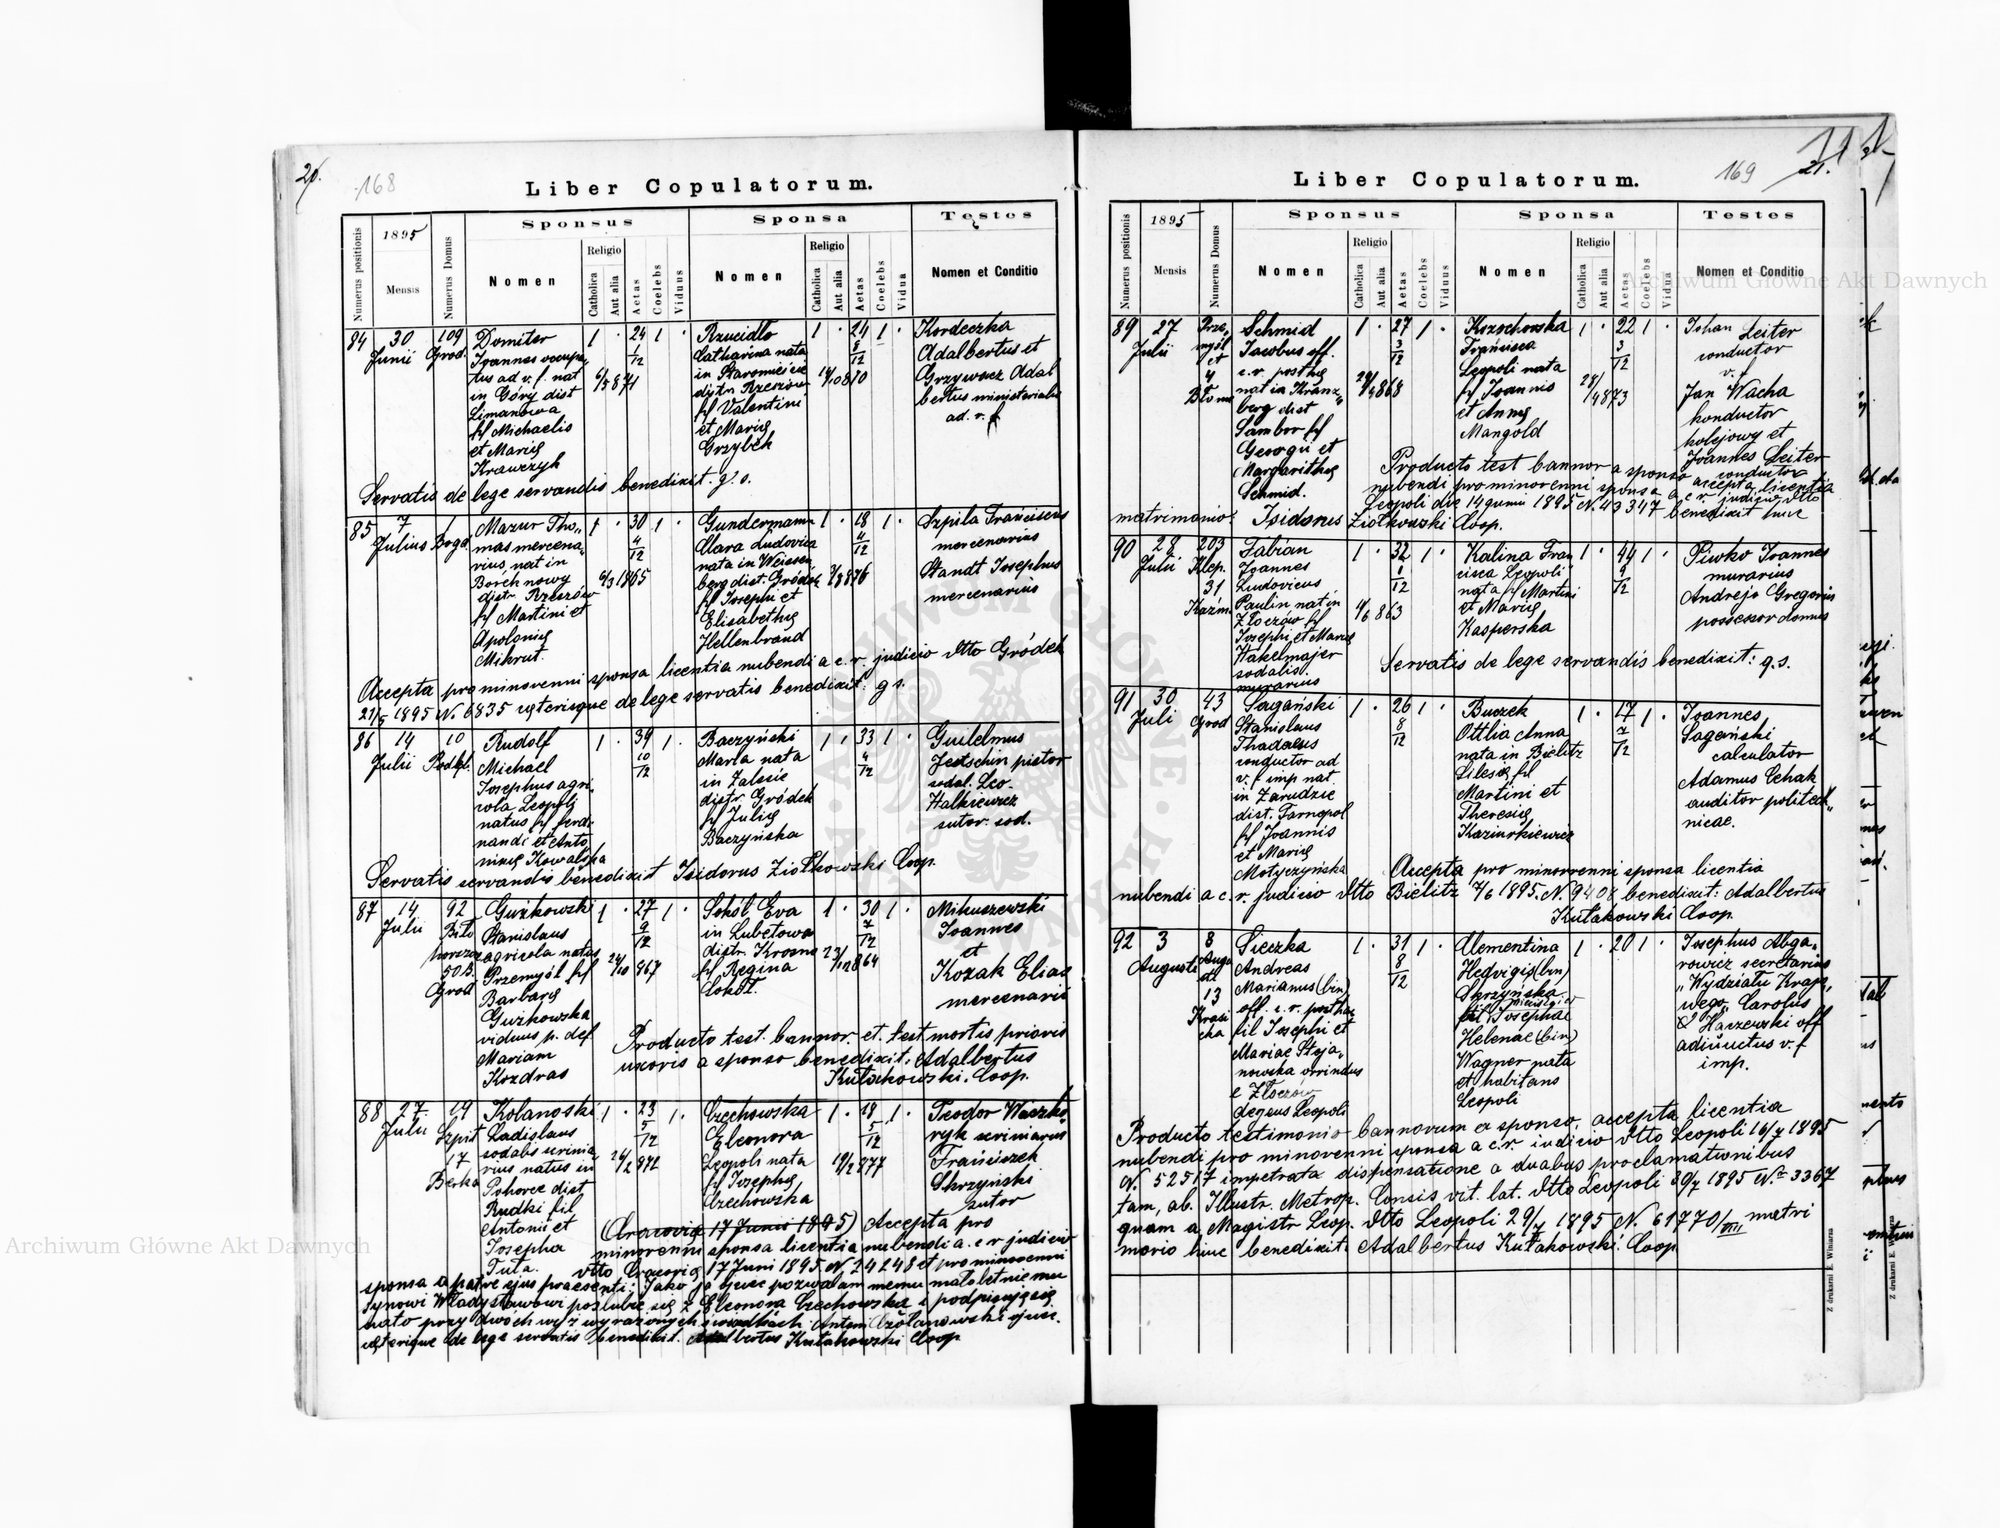 20.
168
Liber Copulatorum.
Numerus positionis
1895
Mensis
Numerus Domus
Sponsus
Nomen
Religio
Catholica
Aut alia
Aetas
Coelebs
Viduus
Sponsa
Nomen
Religio
Catholica
Aut alia
Aetas
Coelebs
Vidua
Testes
Nomen et Conditio
84
30
Junii
109
Grod.
Domiter
Joannes occupa-
tus ad v. f. nat
in Góry dist
Limanowa
f/ Michaelis
et Marię
Krawczyk
1 . 24 1 .
1/12
6/5 871
Rzucidło
Catharina nata
in Staromieście
distr. Rzeszów
f/ Valentini
et Marię
Grzybek
1 . 24 1 .
8/12
Kordeczka
Adalbertus et
Grzywacz Adal
bertus ministerialis
ad. v. f.
Servatis de lege servandis benedixit. g. s.
85
7
Julius
1
Bogd.
Mazur Tho-
mas mercena-
rius, nat in
Borek nowy
distr. Rzeszów
f/ Martini et
Apolonię
Mikrut.
1 . 30 1 .
4/12
6/3 1865
Gundermann
Clara Ludovica
nata in Weissen
berg dist. Gródek
f/ Josephi et
Elisabethę
Hellenbrand
1 . 18 1 .
4/12
Szpila Franciscus
mercenarius
Standt Josephus
mercenarius
Accepta pro minorenni sponsa licentia nubendi a c. r. judicio dtto Gródek
21/5 1895 N. 6835 cęterisque de lege servatis benedixit: g s.
86
14
Julii
10
Rudolf
Michael
Josephus agri-
cola Leopoli
natus f/ Ferdi-
nandi et Anto
ninę Kowalska
1 . 39 1 .
10/12
Baczyński
Maria nata
in Zalesie
distr. Gródek
f/ Julię
Baczyńska
1 . 33 1 .
4/12
Guilelmus
Jettschin pistor
sodal. Leo-
Halkiewicz
sutor. sod.
Servatis servandis benedixit Isidorus Ziółkowski Coop.
87
14
Julii
92
50 B.
Grod
Guzkowski
Stanislaus
agricola natus
Przemyśl f/
Barbarę
Guzkowska
viduus p. def
Mariam
Kozdras
1 . 27 1 .
9/12
24/10 867
Sokół Eva
in Lubatowa
distr. Krosno
f/ Regina
Sokół.
1 . 30 1 .
7/12
23/12 864
Mikuszewski
Joannes
et
Kozak Elias
mercenarii
Producto test. bannor. et. test mortis prioris
uxoris a sponso benedixit: Adalbertus
Kułakowski. Coop.
88
27
Julii
19
Szpit
17
Berka
Kolanoski
Ladislaus
sodalis scrinia
rius natus in
Pohorce dist
Rudki fil
Antonii et
Josepha
Tuta.
1 . 23 1 .
5/12
26/2 872
Czechowska
Eleonora
Leopoli nata
f/ Josephę
Czechowska
1 . 18 1 .
5/12
19/2 877
Teodor
ryk scriniarius
Franciszek
Skrzyński
sutor
(Cracovię 17 Junii 1895) Accepta pro
minorenni sponsa licentia nubendi a. c r judicio
dtto Cracovię 17 Juni 1895 N 24248 et pro minorenni
sponsa a patre ejus praesenti; Jako ja ojciec pozwalam memu małoletniemu
synowi Władysławowi poślubić się z Eleonora Czechowska i podpisuję się
na to przy dwóch wyż wyrażonych świadkach Antoni Kolanowski ojciec.
cęterisque de lege servatis benedixit. Adalbertus Kułakowski Coop
169
21.
Liber Copulatorum.
Numerus positionis
1895
Mensis
Numerus Domus
Sponsus
Nomen
Religio
Catholica
Aut alia
Aetas
Coelebs
Viduus
Sponsa
Nomen
Religio
Catholica
Aut alia
Aetas
Coelebs
Vidua
Testes
Nomen et Conditio
89
27
Julii
Prze-
myśl
et
4
Błonie
Schmid
Jacobus off.
c. r. posthę
nat in Kranz-
berg dist
Sambor f/
Georgii et
Margarithę
Schmid.
1 . 27 1 .
3/12
Kozochowska
Francisca
Leopoli nata
f/ Joannis
et Annę
Mangold
1 . 22 1 .
3/12
28/4 873
Johan Leiter
conductor
v. f.
Jan Wacha
konductor
kolejowy et
Joannes Leiter
conductor
Producto test bannor a sponso accepta licentia
nubendi pro minorenni sponsa a c r. judicio dtto
Leopoli die 14 junii 1895 N. 43347 benedixit hunc
matrimonio: Isidorus Ziółkowski Coop.
90
28
Julii
203
Klep.
31
Kazim
Fabian
Joannes
Ludovicus
Paulin nat in
Złoczów f/
Josephi et Marię
Hakelmajer
sodalis
murarius
1 . 32 1 .
1/12
4/6 863
Kalina Fran
cisca Leopoli
nata f/ Martini
et Marię
Kasperska
1 . 44 1 .
9/12
Piwko Joannes
murarius
Andrejo Gregorius
possessor domus
Servatis de lege servandis benedixit: g. s.
91
30
Juli
43
Grod
Sagański
Stanislaus
Thadaeus
conductor ad
v. f imp nat.
in Zarudzie
dist. Tarnopol
f/ Joannis
et Marię
Motyczyńska
1 . 26 1 .
8/12
Buczek
Ottlia Anna
nata in Bielitz
Silesię fil
Martini et
Theresię
Kaziurkiewicz
1 . 17 1 .
7/12
Joannes
Sagański
calculator
Adamus Cehak
auditor politech-
nicae.
Accepta pro minorenni sponsa licentia
nubendi a c. r. judicio dtto Bielitz 7/6 1895. N. 9408 benedixit: Adalbertus
Kułakowski Coop.
92
3
Augusti
8
13
Krasi
cka
Sieczka
Andreas
Marianus (bin)
off. c. r. posthae
fil Josephi et
Mariae Stoja-
nowska oriundus
e Złoczów
degens Leopoli
1 . 31 1 .
8/12
Clementina
Hedvigis (bin)
Skrzyńska
fil Josephae
Helenae (bin)
Wagner nata
et habitans
Leopoli
1 . 20 1 .
Josephus Abga-
rowicz secretarius
"Wydziału Krajo-
wego, Carolus
Haczewski off
adiunctus v. f
imp.
Producto testimonio bannorum ex sponso, accepta licentia
nubendi pro minorenni sponsa a c.r. iudicio dtto Leopoli 16/7 1895
N. 52517 impetrata dispensatione a duabus proclamationibus
tam, ab. Illustr. Metrop. Consis rit. lat. dtto Leopoli 30/7 1895 N= 3367
quam a Magistr Leop. dtto Leopoli 29/7 1895 N. 61770/VIII matri
monio hunc benedixit: Adalbertus Kułakowski. Coop
Z drukarni E. Winiarza
Z drukarni E. W
Archiwum Główne Akt Dawnych
Archiwum Główne Akt Dawnych
ARCHIWUM GŁÓWNE